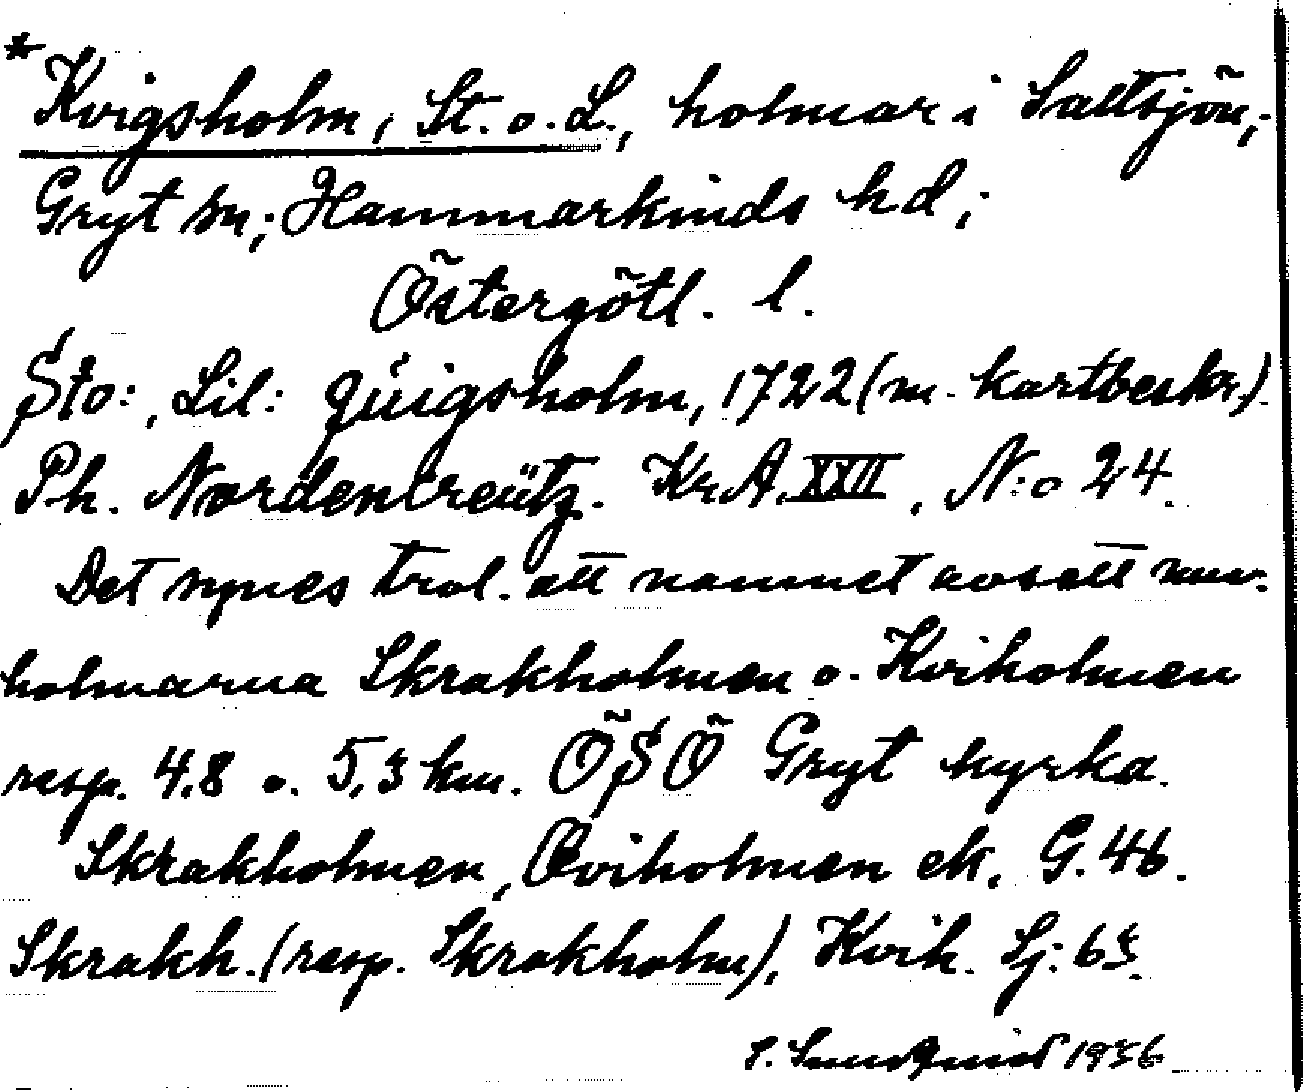 * Kvigsholm, St. o. L., holmar i Saltsjön,
Gryt sn; Hammarkinds hd;
Östergötl. l.
Sto:, Lil: qüigsholm, 1722 (m. kartbeskr.)
Ph. Nordencreütz. Kr.A. XXII, N:o 24.
Det synes trol. att namnet avsett nuv.
holmarna Skrakholmen o. Kviholmen
resp. 4,8 o. 5,3 km. ÖSÖ Gryt kyrka.
Skrakholmen, Qviholmen ek. G. 46.
Skrakh. (resp. Skrakholm), Kvih. Sj: 63.
S. Sundquist 1936